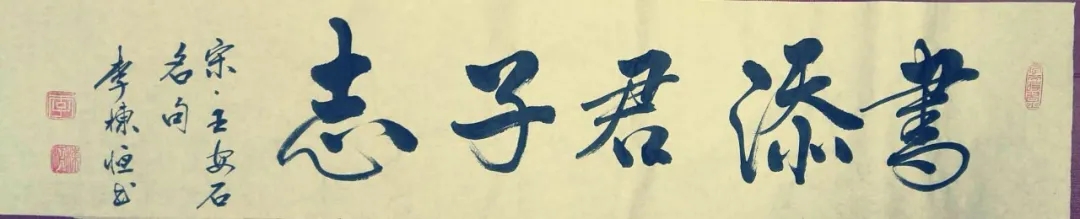 書添君子志
宋·王安石
名句
李棟恒书